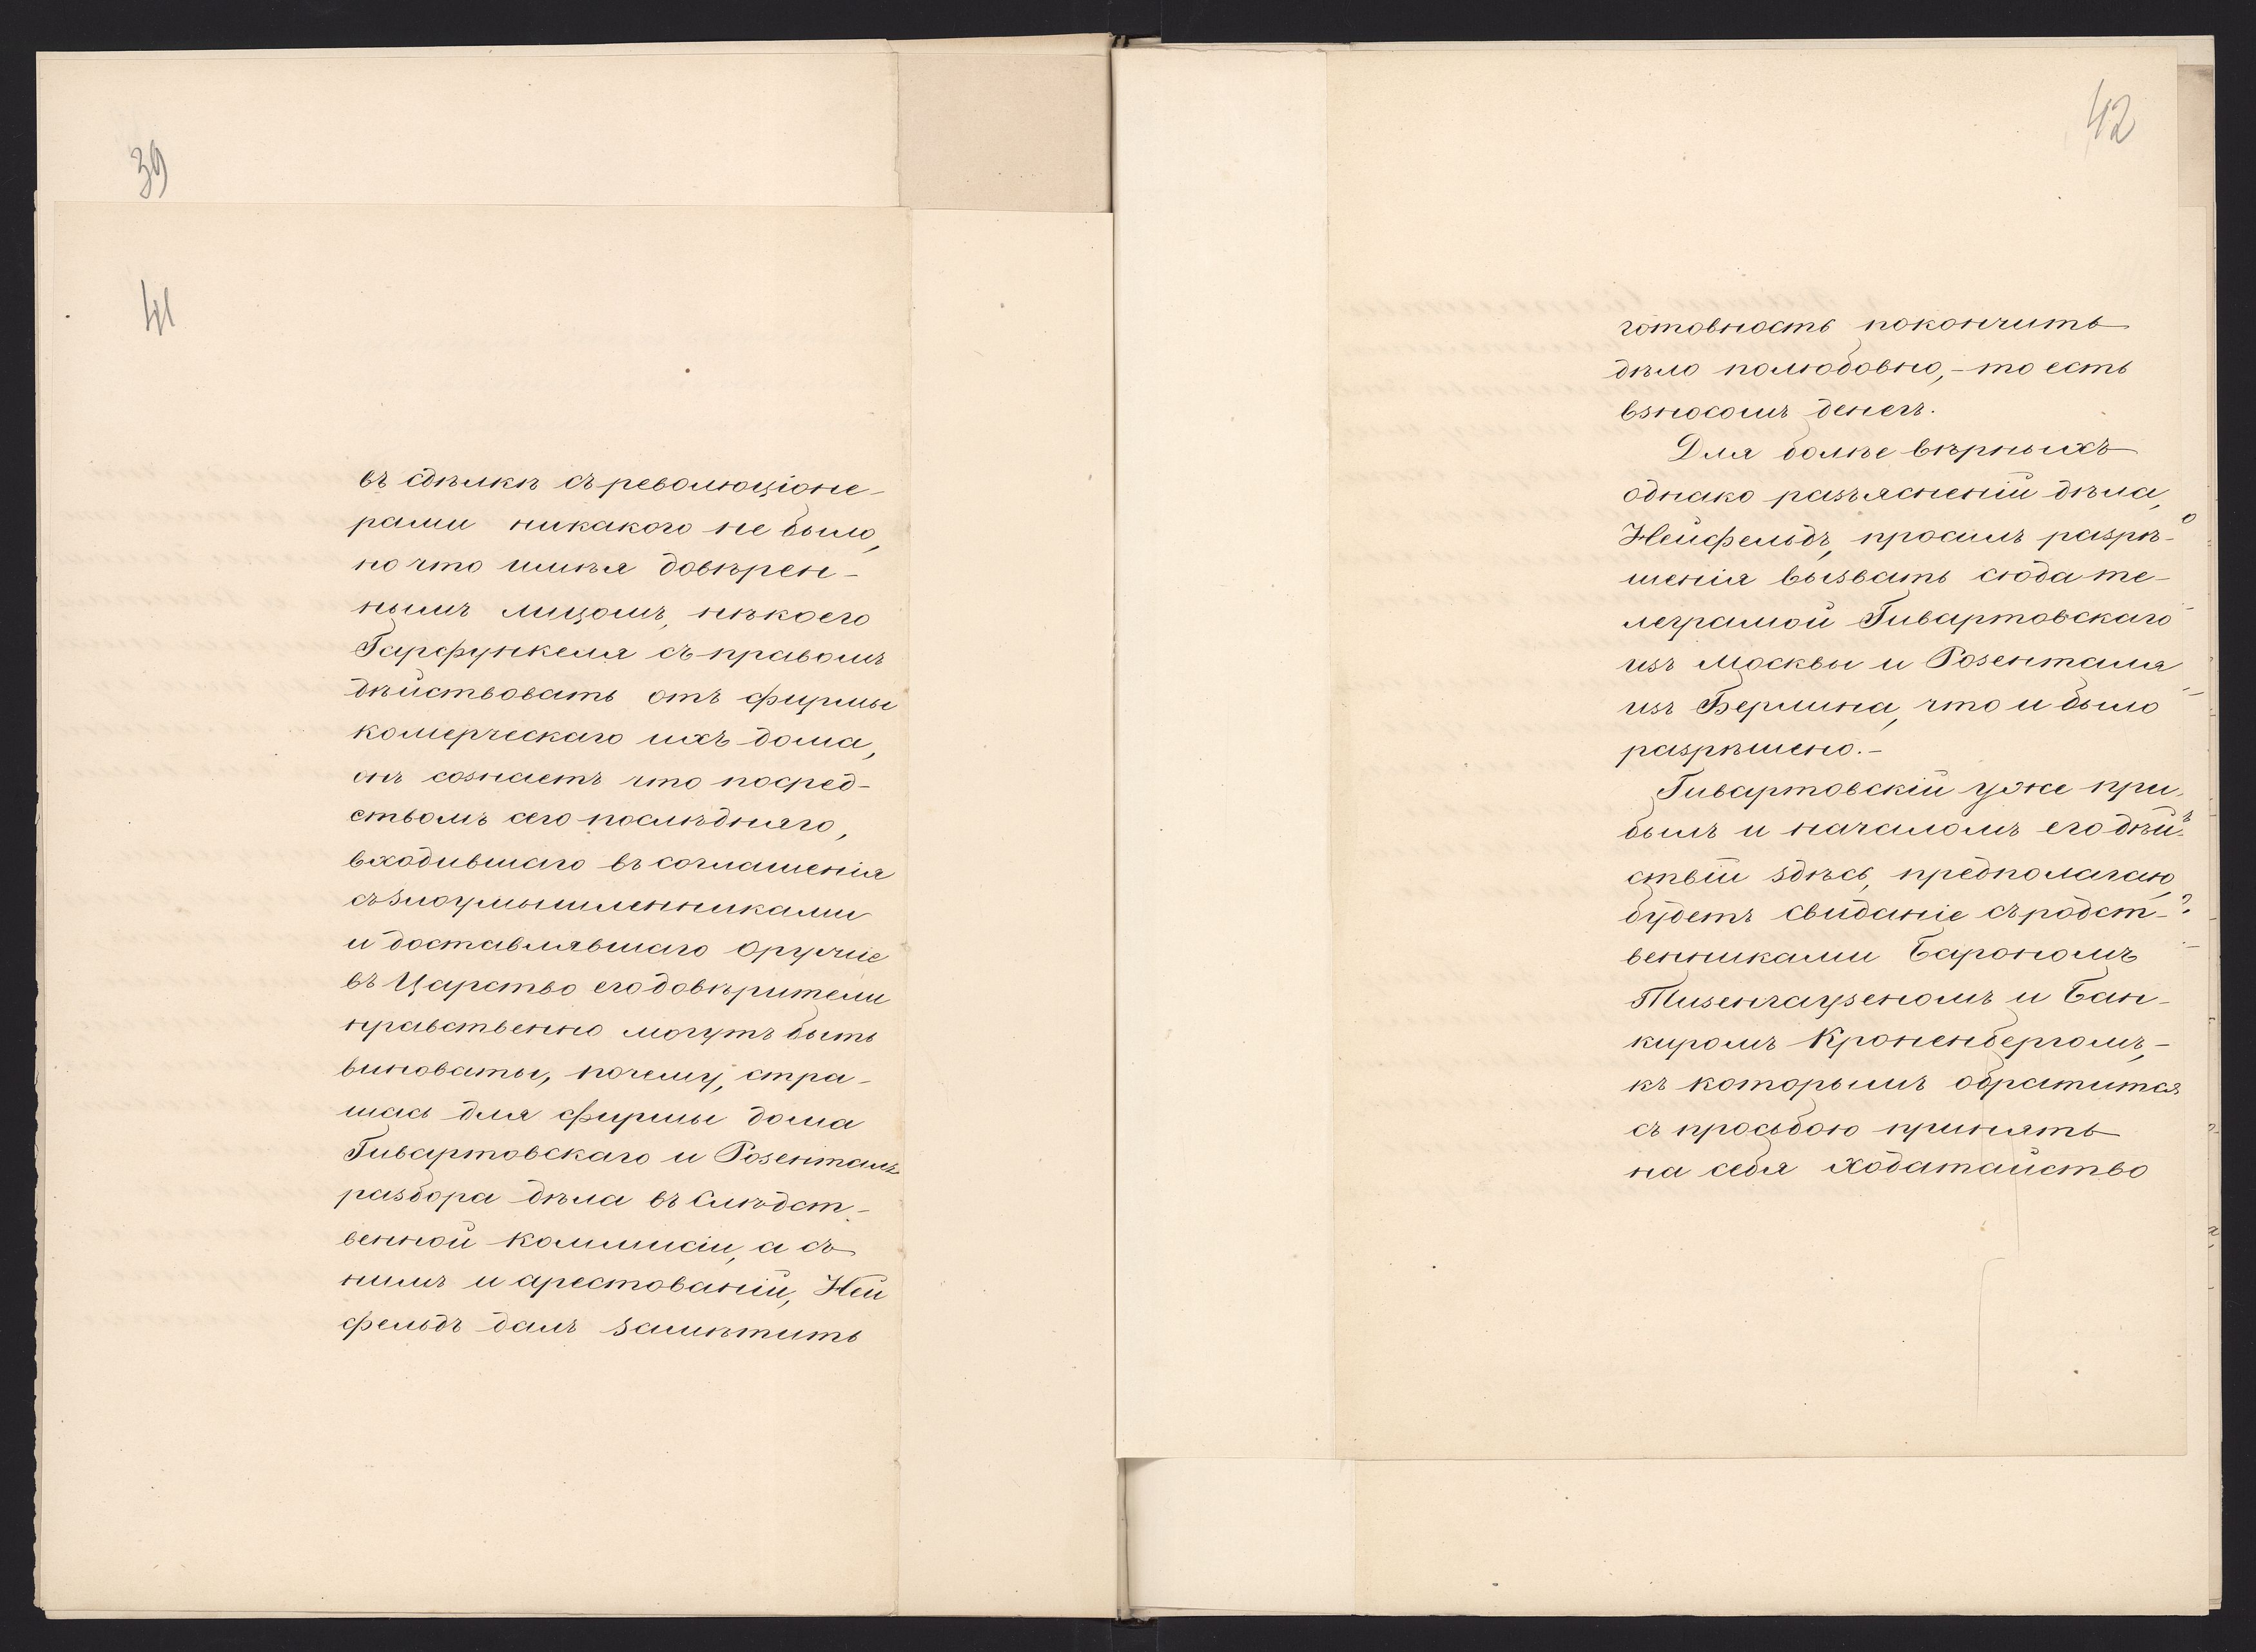 39
41
въ сдѣлкѣ съ революціоне-
рами никакого не было,
но что имѣя довѣрен-
нымъ лицомъ, нѣкоего
Гарфункеля съ правомъ
дѣйствовать отъ фирмы
комерческаго ихъ дома,
онъ сознаетъ что посред-
ствомъ сего послѣдняго,
входившаго въ соглашенія
съ злоумышленниками
и доставлявшаго оружіе
въ Царство его довѣрители
нравственно могутъ быть
виноваты, почему, стра-
шась для фирмы дома
Гивартовскаго и Розенталь
разбора дѣла въ Слѣдст-
венной Коммисіи, а съ
нимъ и арестованій, Ней
фельдъ далъ замѣтить
42
готовность покончить
дѣло полюбовно, - то есть
взносомъ денегъ.
Для болѣе вѣрныхъ
однако разъясненій дѣла,
Нейфельдъ, просилъ разрѣ-
шенія вызвать сюда те-
леграмой Гивартовскаго
изъ Москвы и Розенталя
изъ Берлина, что и было
разрѣшено. -
Гивартовскій уже при-
былъ и началомъ его дѣй-
ствій здѣсь, предполагаю,
будетъ свиданіе съ родст-
венниками Барономъ
Тизенгаузеномъ и Бан-
киромъ Кроненбергомъ, -
къ которымъ обратится
съ просьбою принять
на себя ходатайство